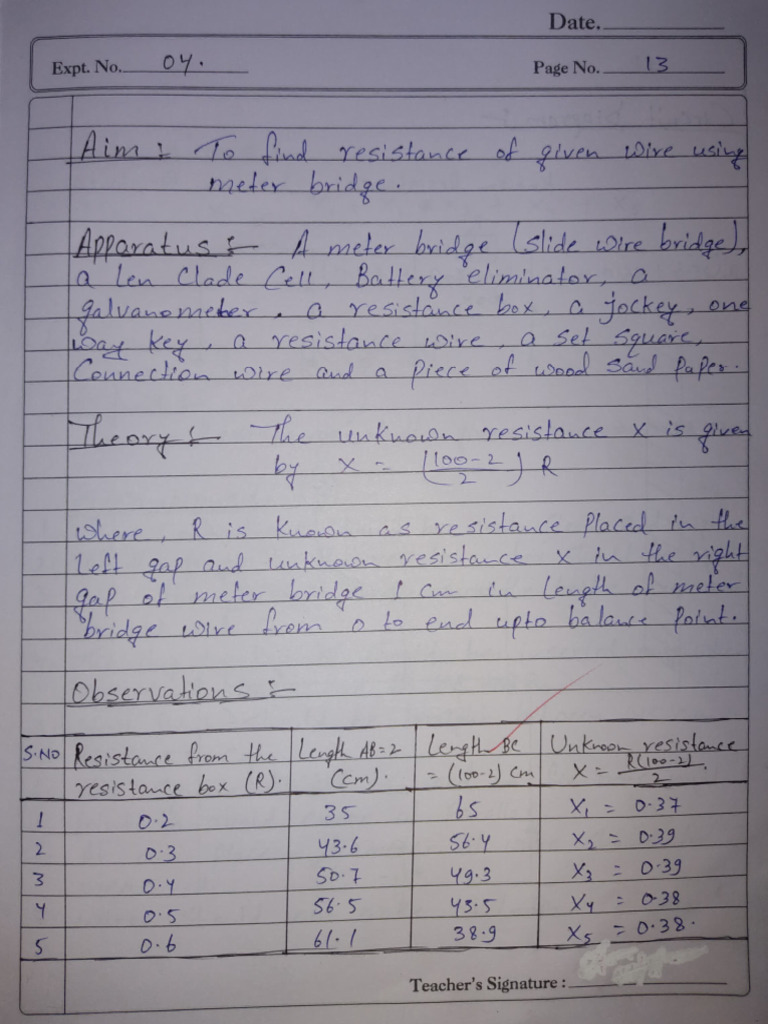 Date.
Expt. No. 04. Page No. 13
Aim :- To find resistance of given wire using
meter bridge.
Apparatus :- A meter bridge (slide wire bridge),
a Len Clade Cell, Battery eliminator, a
galvanometer, a resistance box, a jockey, one
way key, a resistance wire, a set square,
Connection wire and a piece of wood sand paper.
Theory :- The unknown resistance x is given
by x = (100-2/2) R
where, R is known as resistance placed in the
left gap and unknown resistance x in the right
gap of meter bridge 1 cm in length of meter
bridge wire from 0 to end upto balance point.
Observations :-
S.NO | Resistance from the resistance box (R). | Length AB=2 (cm). | Length BC = (100-2) cm | Unknown resistance X = R(100-2)/2.
1 | 0.2 | 35 | 65 | X1 = 0.37
2 | 0.3 | 43.6 | 56.4 | X2 = 0.39
3 | 0.4 | 50.7 | 49.3 | X3 = 0.39
4 | 0.5 | 56.5 | 43.5 | X4 = 0.38
5 | 0.6 | 61.1 | 38.9 | X5 = 0.38.
Teacher's Signature :